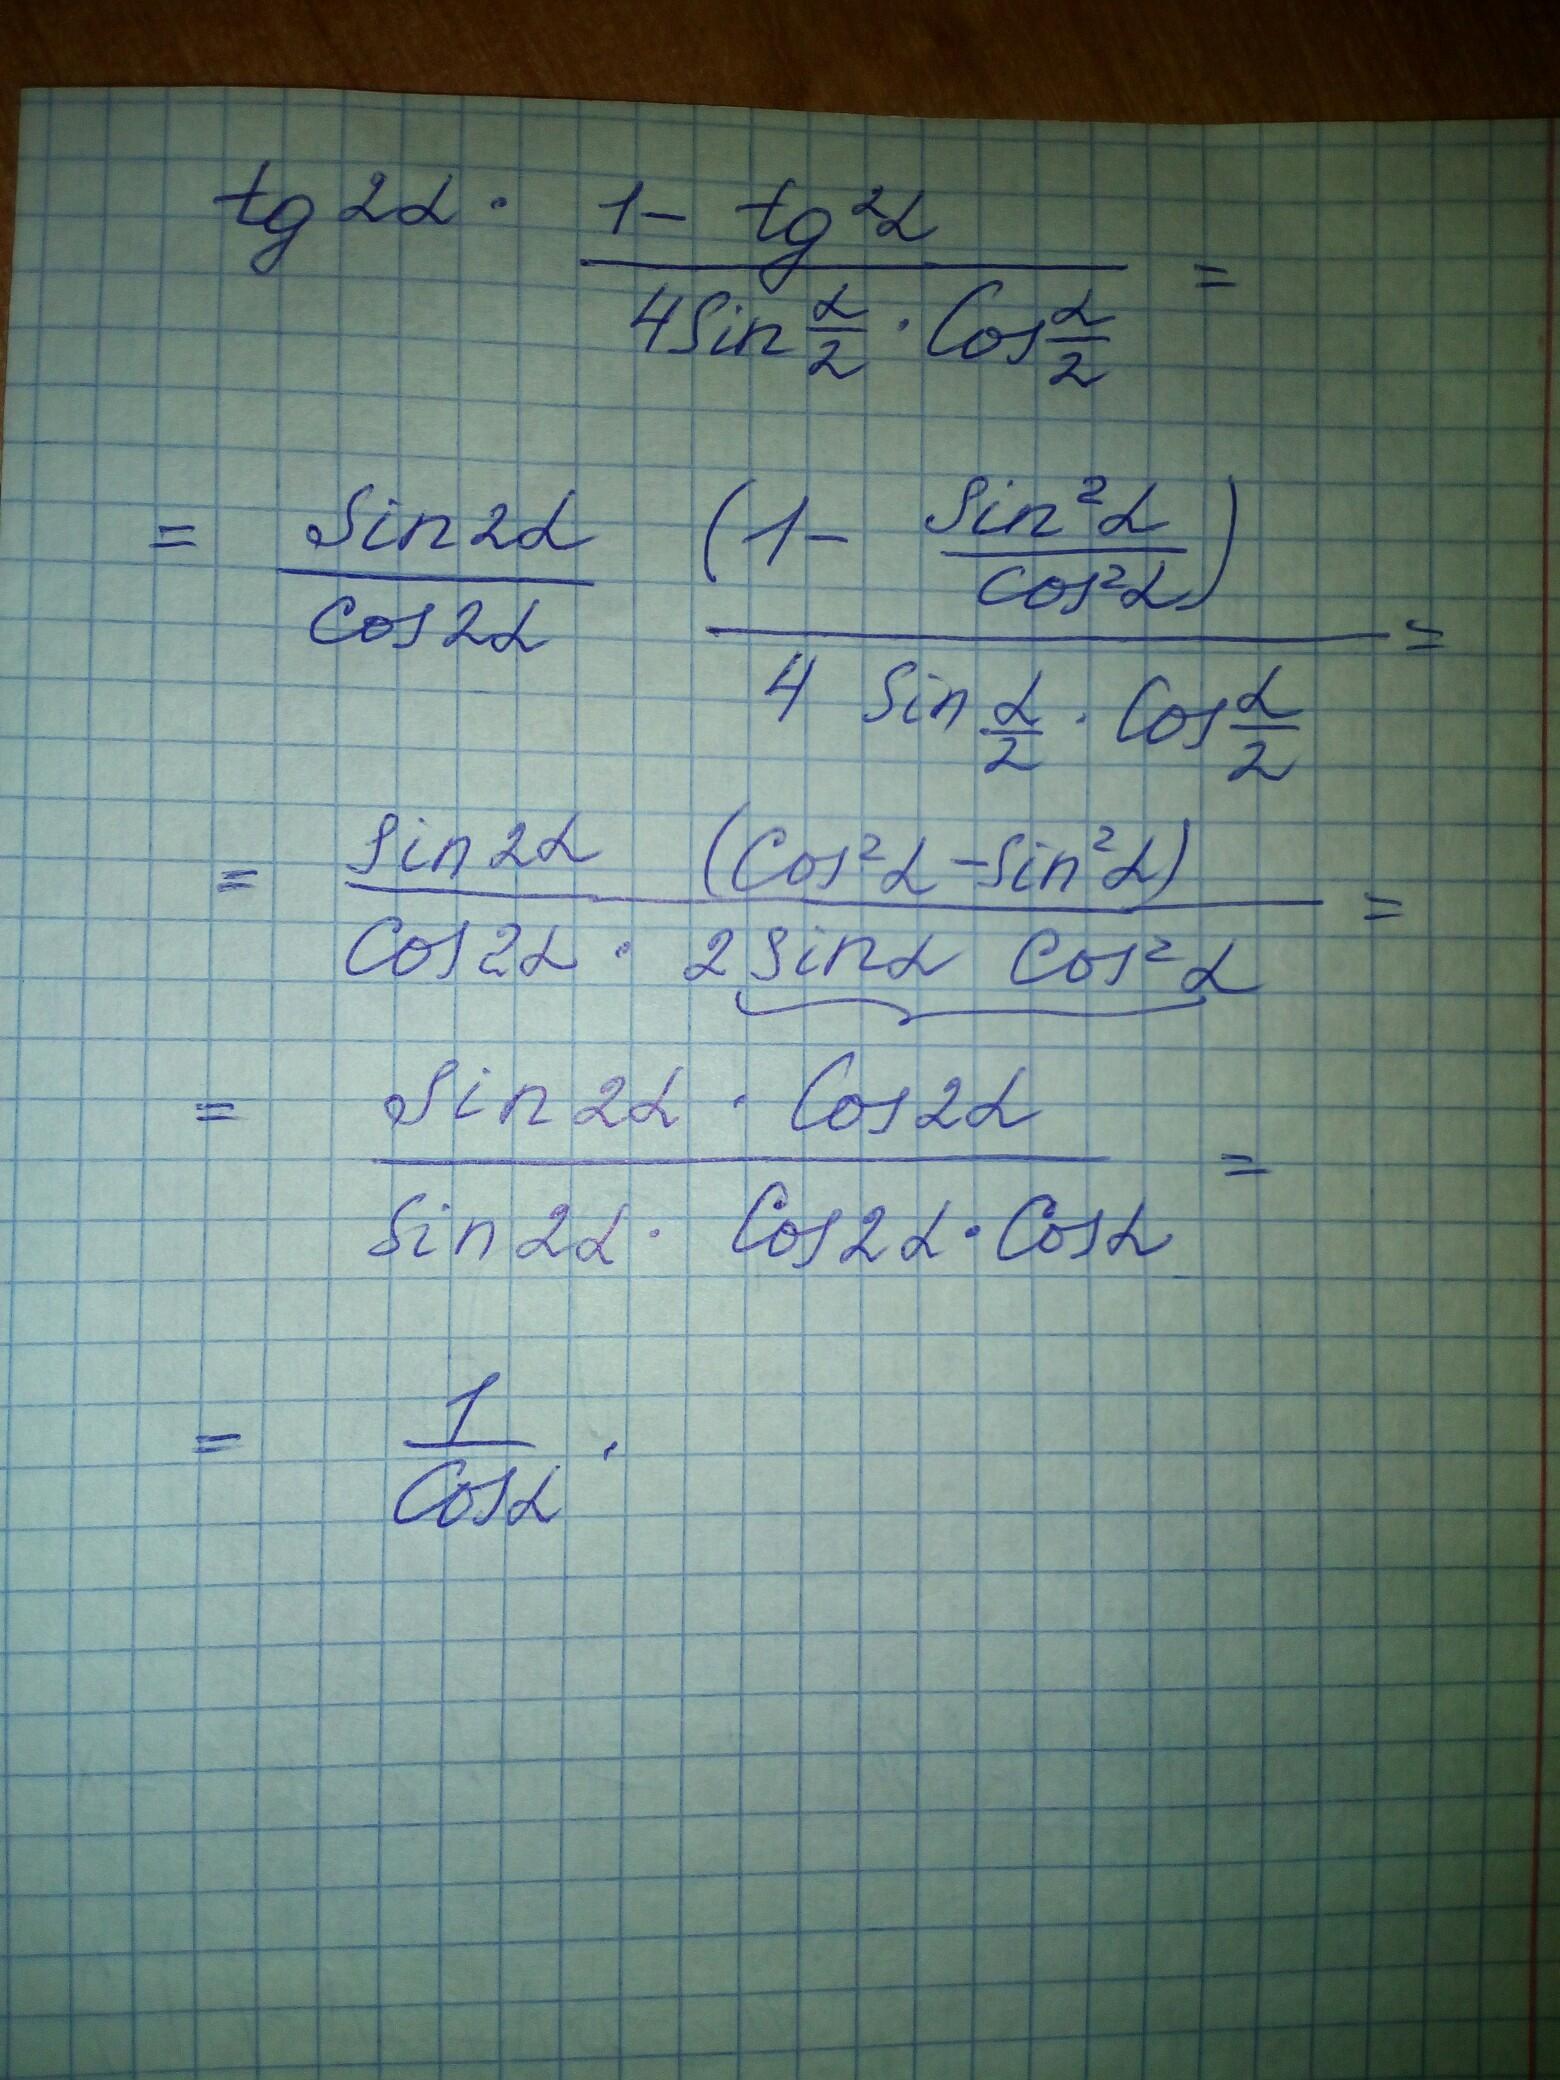 tg 2α · (1 - tg²α) / (4 Sin α/2 · Cos α/2) =
= Sin 2α / Cos 2α (1 - Sin²α / Cos²α) / (4 Sin α/2 · Cos α/2) =
= Sin 2α (Cos²α - Sin²α) / (Cos 2α · 2 Sin α Cos²α) =
= Sin 2α · Cos 2α / (Sin 2α · Cos 2α · Cos α) =
= 1 / Cos α .